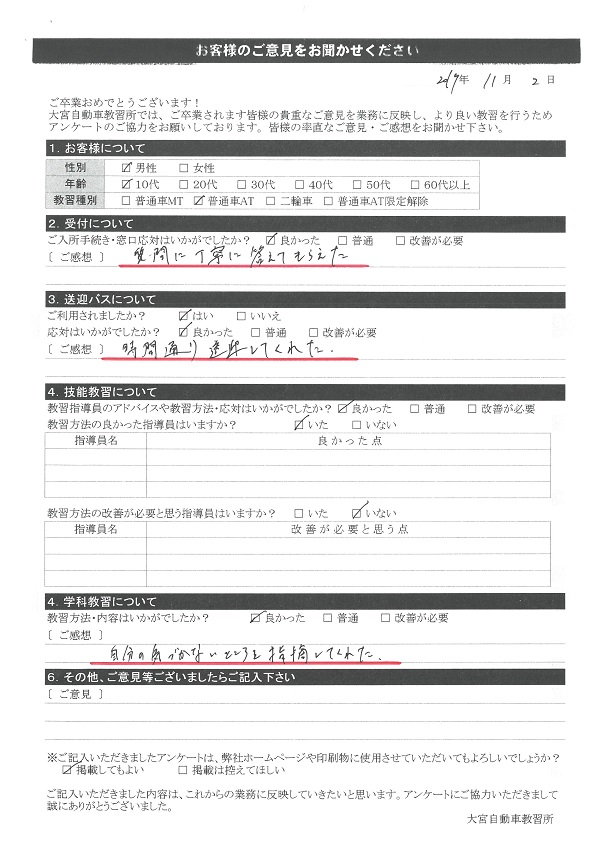 お客様のご意見をお聞かせください
2019年 11月 2日
ご卒業おめでとうございます！
大宮自動車教習所では、ご卒業されます皆様の貴重なご意見を業務に反映し、より良い教習を行うため
アンケートのご協力をお願いしております。皆様の率直なご意見・ご感想をお聞かせ下さい。
1. お客様について
性別 ☑ 男性 □ 女性
年齢 ☑ 10代 □ 20代 □ 30代 □ 40代 □ 50代 □ 60代以上
教習種別 □ 普通車MT ☑ 普通車AT □ 二輪車 □ 普通車AT限定解除
2. 受付について
ご入所手続き・窓口応対はいかがでしたか？ ☑ 良かった □ 普通 □ 改善が必要
〔 ご感想 〕 質問に丁寧に答えてもらえた
3. 送迎バスについて
ご利用されましたか？ ☑ はい □ いいえ
応対はいかがでしたか？ ☑ 良かった □ 普通 □ 改善が必要
〔 ご感想 〕 時間通り送迎してくれた.
4. 技能教習について
教習指導員のアドバイスや教習方法・応対はいかがでしたか？ ☑ 良かった □ 普通 □ 改善が必要
教習方法の良かった指導員はいますか？ ☑ いた □ いない
指導員名 良かった点
教習方法の改善が必要と思う指導員はいますか？ □ いた ☑ いない
指導員名 改善が必要と思う点
4. 学科教習について
教習方法・内容はいかがでしたか？ ☑ 良かった □ 普通 □ 改善が必要
〔 ご感想 〕
自分の気づかないところを指摘してくれた.
6. その他、ご意見等ございましたらご記入下さい
〔 ご意見 〕
※ご記入いただきましたアンケートは、弊社ホームページや印刷物に使用させていただいてもよろしいでしょうか？
☑ 掲載してもよい □ 掲載は控えてほしい
ご記入いただきました内容は、これからの業務に反映していきたいと思います。アンケートにご協力いただきまして
誠にありがとうございました。
大宮自動車教習所